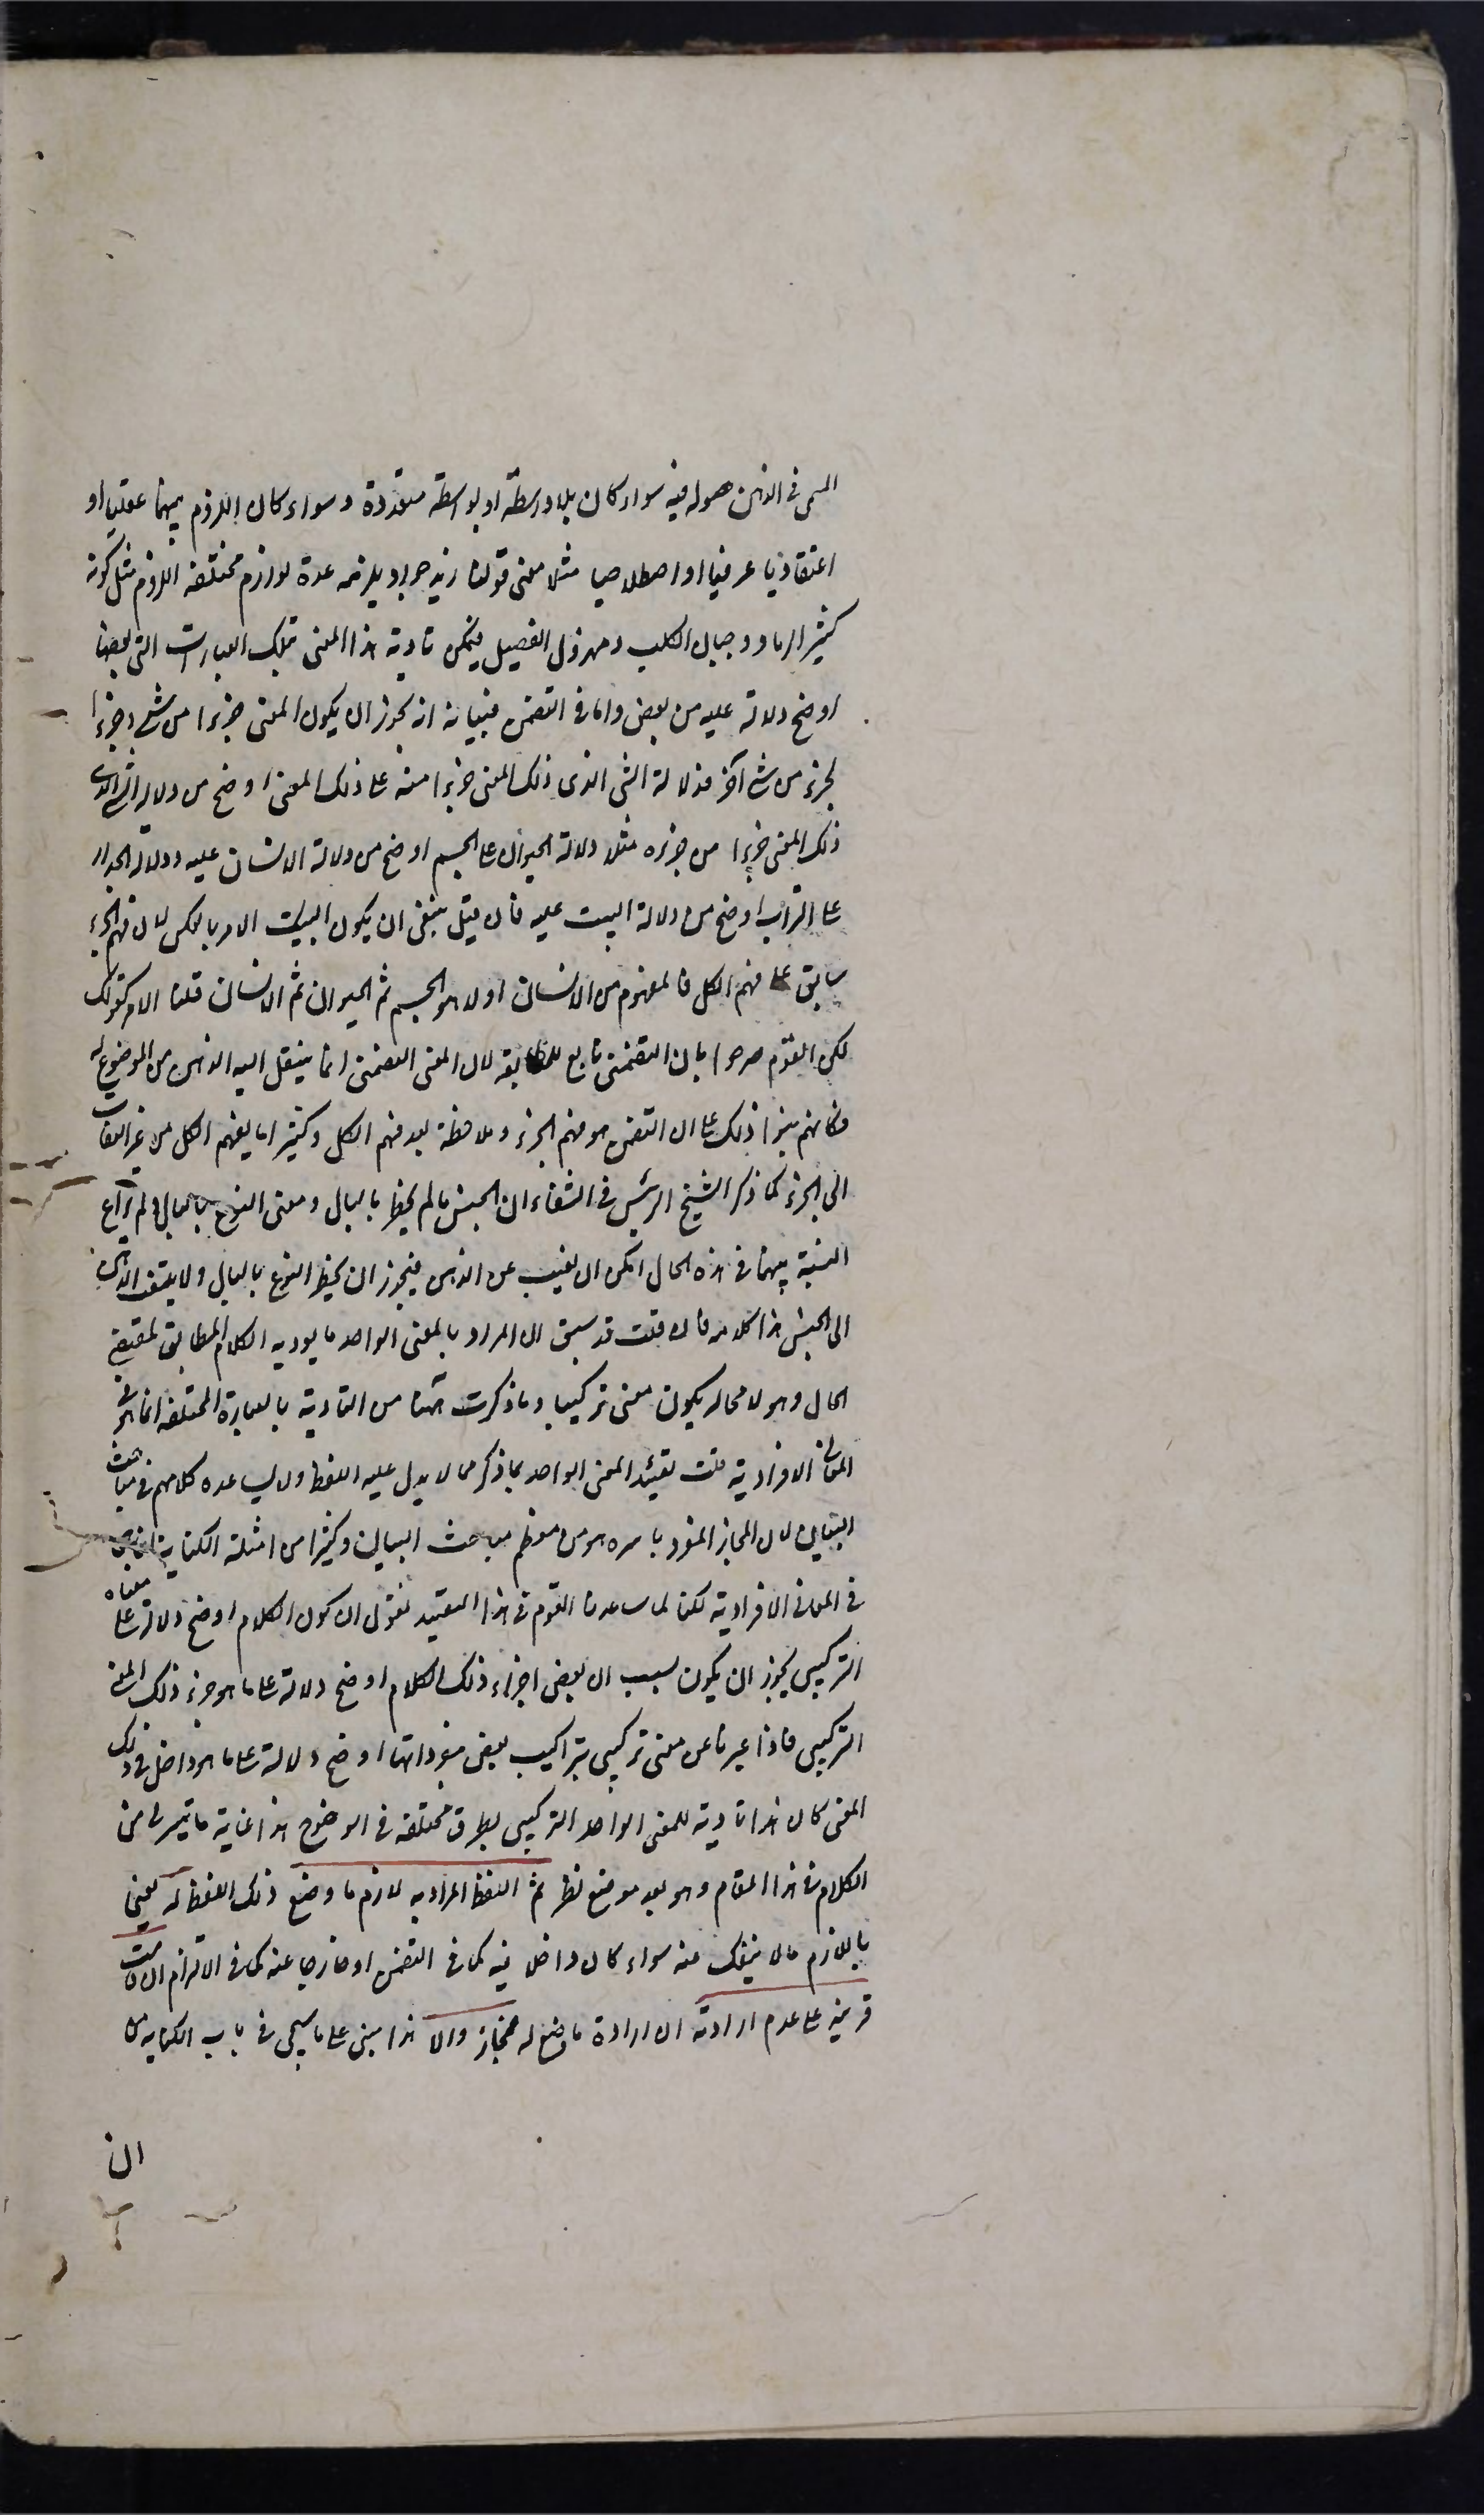 المسمى فى الذهن حصوله فيه سواء كان بلا واسطة او بواسطة متعددة وسواء كان اللزوم بينهما عقليا او
اعتقاديا عرفيا او اصطلاحيا مثلا معنى قولنا زيد جواد يلزمه عدة لوازم مختلفة اللزوم مثل كونه
كثير الرماد وجبان الكلب ومهزول الفصيل فيمكن تادية هذا المعنى بتلك العبارات التى بعضها
اوضح دلالة عليه من بعض واما فى التضمن فبيانه انه يجوز ان يكون المعنى جزءا من شئ وجزءا
لجزء من شئ آخر فدلالة الشئ الذى ذلك المعنى جزءا منه على ذلك المعنى اوضح من دلالة الشئ الذى
ذلك المعنى جزءا من جزئه مثلا دلالة الحيوان على الجسم اوضح من دلالة الانسان عليه ودلالة الجدار
على التراب اوضح من دلالة البيت عليه فان قيل ينبغى ان يكون البيت الامر بالعكس لان فهم الجزء
سابق على فهم الكل فالمفهوم من الانسان اولا هو الجسم ثم الحيوان ثم الانسان قلنا الامر كقولك
لكن القوم صرحوا بان التضمنى تابع للمطابقة لان المعنى التضمنى انما ينتقل اليه الذهن من الموضوع له
فكانهم بنوا ذلك على ان التضمن هو فهم الجزء وملاحظته بعد فهم الكل وكثيرا ما يفهم الكل من غير التفات
الى الجزء كما ذكر الشيخ الرئيس فى الشفاء ان الجنس ما لم يخطر بالبال ومعنى النوع بالبال ولم يراع
النسبة بينهما فى هذه الحال امكن ان يغيب عن الذهن فيجوز ان يخطر النوع بالبال ولا يلتفت الذهن
الى الجنس هذا كلامه فان قلت قد سبق ان المراد بالمعنى الواحد ما يوديه الكلام المطابق لمقتضى
الحال وهو لا محالة يكون معنى تركيبيا وما ذكرت ههنا من التادية بالعبارة المختلفة انما هو فى
المعانى الافرادية قلت تقييد المعنى الواحد بما ذكر مما لا يدل عليه اللفظ ولا يساعده كلامهم فى مباحث
البيان لان المجاز المفرد باسره هو من معظم مباحث البيان وكثيرا من امثلة الكناية انما هى
فى المعانى الافرادية لكنا لما ساعدنا القوم فى هذا التقييد نقول ان كون الكلام اوضح دلالة على معناه
التركيبى يجوز ان يكون بسبب ان بعض اجزاء ذلك الكلام اوضح دلالة على ما هو جزء ذلك المعنى
التركيبى فاذا عبرنا عن معنى تركيبى بتراكيب بعض مفرداتها اوضح دلالة على ما هو داخل فى ذلك
المعنى كان هذا تادية للمعنى الواحد التركيبى بطرق مختلفة فى الوضوح هذا غاية ما تيسر لى من
الكلام فى هذا المقام وهو بعد موضع نظر ثم اللفظ المراد به لازم ما وضع ذلك اللفظ له يعنى
باللازم ما لا ينفك عنه سواء كان داخلا فيه كما فى التضمن او خارجا عنه كما فى الالتزام ان قامت
قرينة على عدم ارادته ان ارادة ما وضع له فمجاز والا هذا مبنى على ما سيجئ فى باب الكناية من
ان